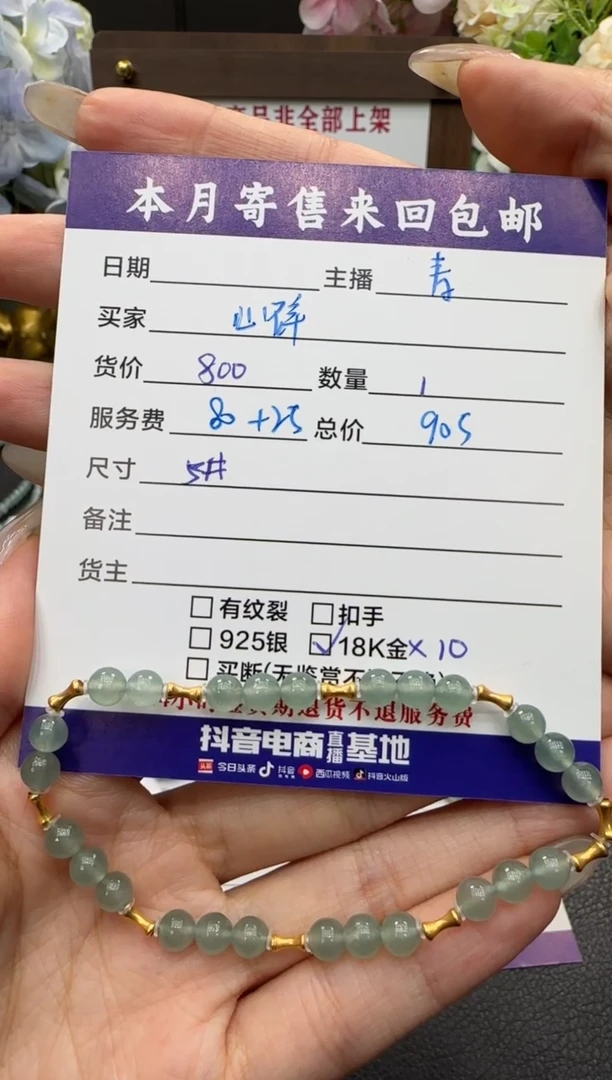 产品非全部上架
本月寄售来回包邮
日期 主播 青
买家
货价 800 数量 1
服务费 80+25 总价 905
尺寸 5#
备注
货主
有纹裂 扣手
925银 ✓ 18K金×10
买断(无鉴赏不
退货不退服务费
抖音电商直播基地
头条 今日头条 抖音 西瓜视频 抖音火山版